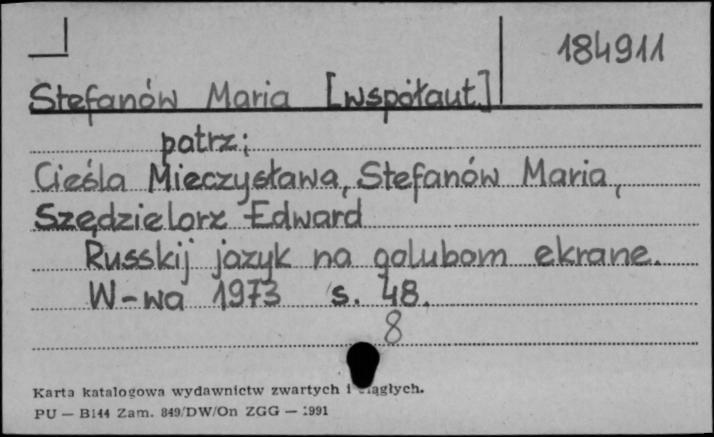 184911
Stefanów Maria [współaut.]
patrz:
Cieśla Mieczysława, Stefanów Maria,
Szędzielorz Edward
Russkij jazyk na golubom ekrane.
W-wa 1973 s. 48.
8
Karta katalogowa wydawnictw zwartych i ciągłych.
PU — B144 Zam. 849/DW/On ZGG — 1991